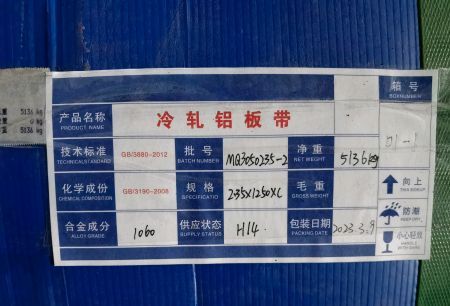 5136 kg
0 kg
5136 kg
产品名称
PRODUCT NAME
冷轧铝板带
箱号
BOXNUMBER
01-1
技术标准
TECHNICALSTANDARD
GB/3880-2012
批号
BATCH NUMBER
MQ3050235-2
净重
NET WEIGHT
5136kg
化学成份
CHEMICAL COMPOSITION
GB/3190-2008
规格
SPECIFICATIO
2.35X1250XC
毛重
GROSS WEIGHT
向上
THIS SIDEUP
防潮
KEEP DRY
合金成分
ALLOY GRADE
1060
供应状态
SUPPLY STATUS
H14
包装日期
PACKING DATE
2023.3.9
小心轻放
HANDLE
WITH CARE